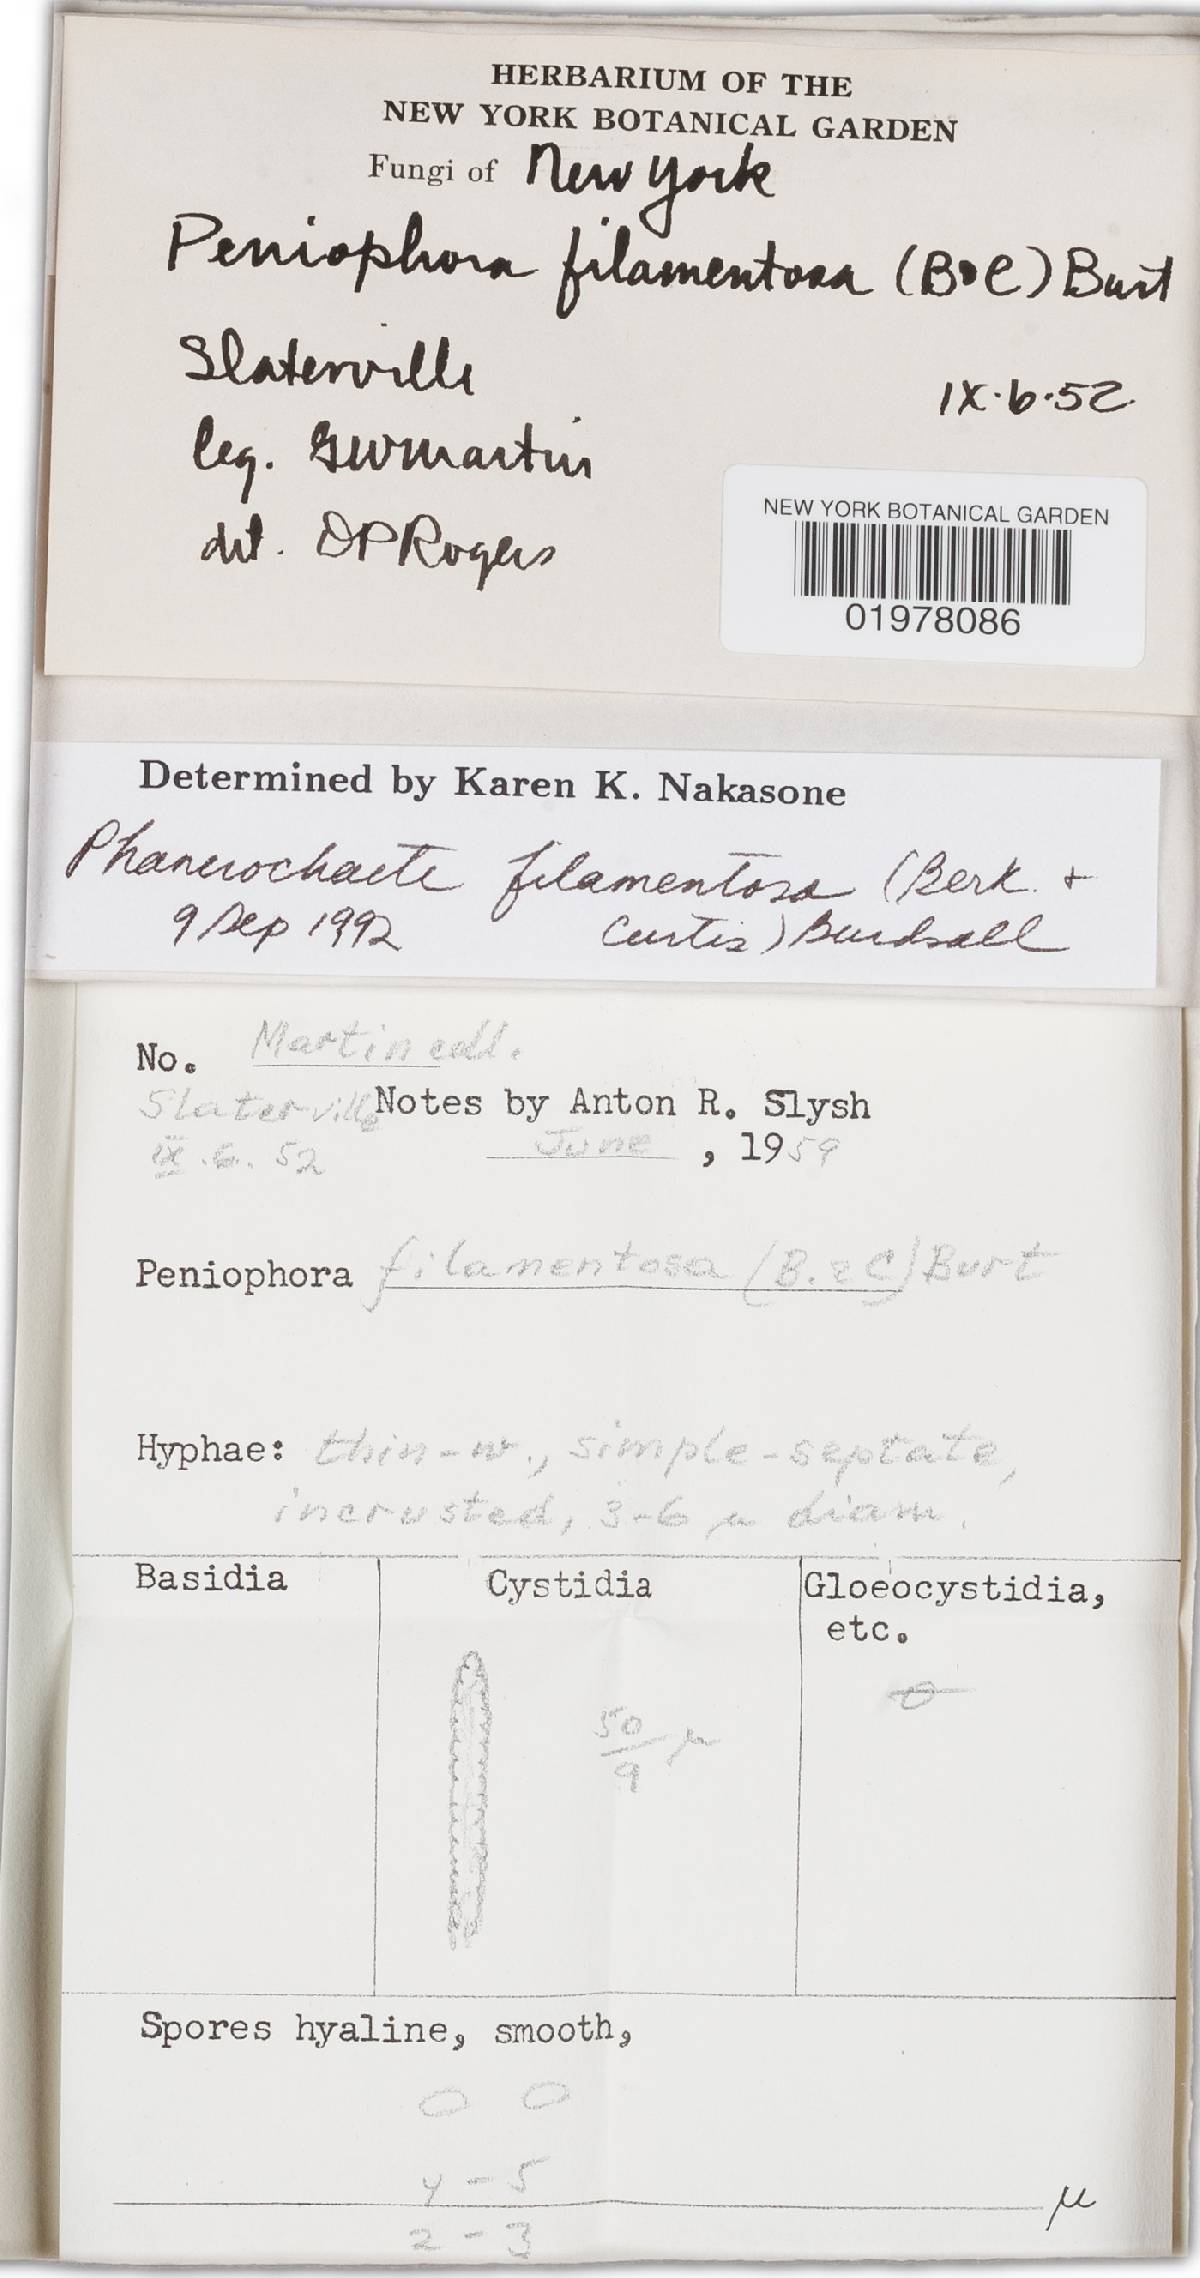 HERBARIUM OF THE
NEW YORK BOTANICAL GARDEN
Fungi of New York
Peniophora filamentosa (B&C) Burt
Slaterville
IX·6·52
leg. GWMartin
det. DPRogers
NEW YORK BOTANICAL GARDEN
01978086
Determined by Karen K. Nakasone
Phanerochaete filamentosa (Berk. +
9 Sep 1992 Curtis) Burdsall
No. Martin coll.
Slaterville Notes by Anton R. Slysh
IX.6.52 June, 1959
Peniophora filamentosa (B. & C) Burt
Hyphae: thin-w., simple-septate,
incrusted, 3-6 μ diam.
Basidia Cystidia Gloeocystidia,
etc.
50/9 μ
Spores hyaline, smooth,
4-5
μ
2-3